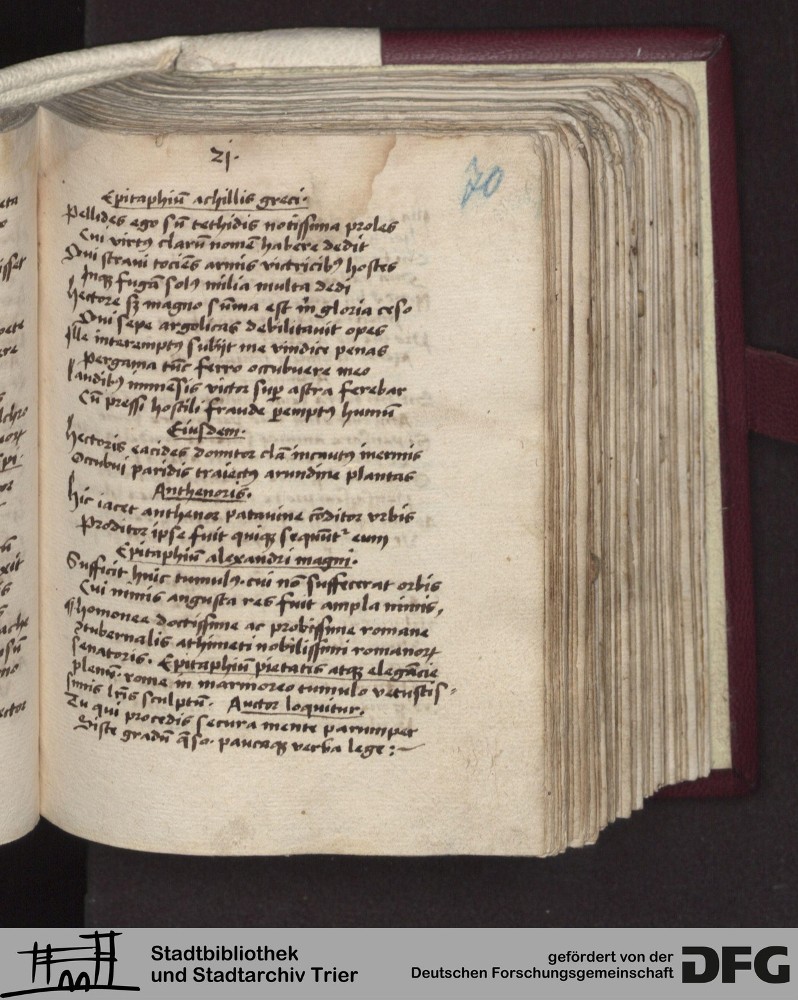 21.
70
Epitaphiũ achillis greci.
Pellides ego sũ tethidis notissima proles
Cui virtꝰ clarũ nomẽ habere dedit
Qui straui tociẽs armis victricibꝰ hostes
Inqꝫ fugã solꝰ milia multa dedi
Hectore sꝫ magno sũma est m̃ gloria ceso
Qui sepe argolicas debilitauit opes
Ille interemptꝰ subijt me vindice penas
Pergama tũc ferro occubuere meo
laudibꝰ immẽsis victor suꝑ astra ferebar
Cũ pressi hostili fraude ꝑemptꝰ humũ
Eiusdem.
Hectoris eacides domitor clã incautꝰ inermis
Occubui paridis traiectꝰ arundine plantas
Anthenoris.
Hic iacet anthenor patauine cõditor vrbis
Proditor ipse fuit quiqꝫ sequũt᷑ eum
Epitaphiũ alexandri magni.
Sufficit huic tumulꝰ. cui nõ suffecerat orbis
Cui nimis angusta res fuit ampla nimis,
homonee doctissime ac probissime romane
ꝯtubernalis athimeti nobilissimi romanoꝝ
senatoris. Epitaphiũ pietatis atqꝫ elegãcie
plenũ. rome in marmoreo tumulo vetustis-
simis lr̃is sculptũ. Auctor loquitur.
Tu qui procedis secura mente parumper
Siste gradũ q̃so. paucaqꝫ verba lege :~
Stadtbibliothek
und Stadtarchiv Trier
gefördert von der
Deutschen Forschungsgemeinschaft
DFG